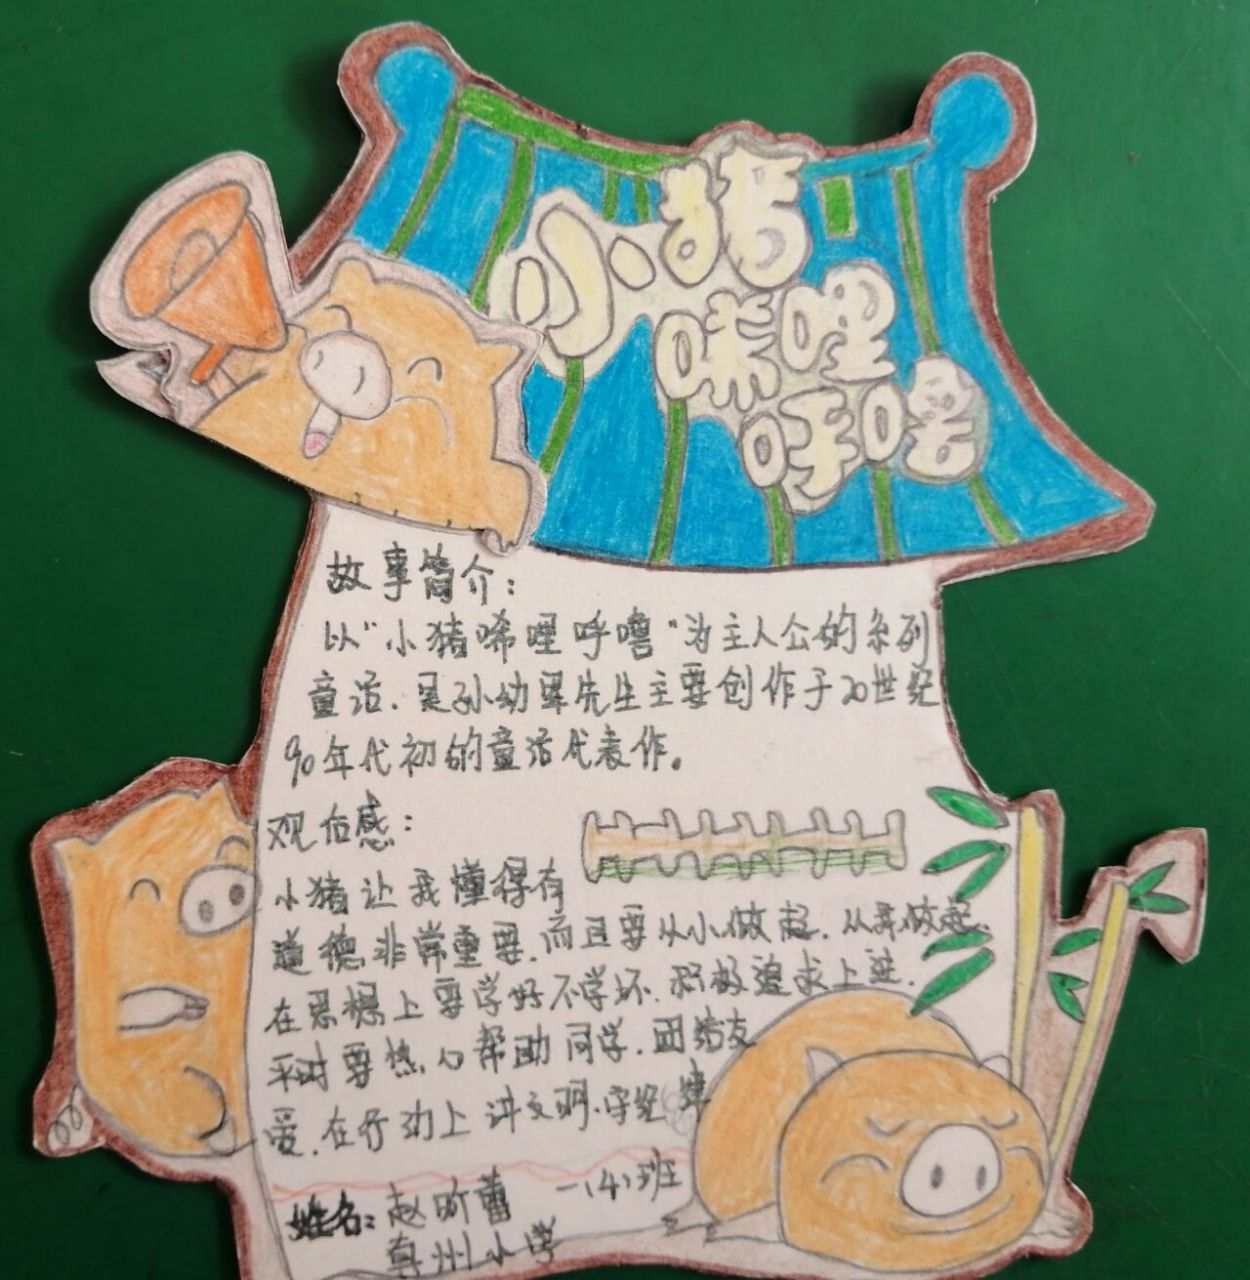 小猪
唏哩
呼噜
故事简介:
以“小猪唏哩呼噜”为主人公的系列
童话.是孙幼军先生主要创作于20世纪
90年代初的童话代表作。
观后感:
小猪让我懂得有
道德非常重要.而且要从小做起.从我做起.
在思想上要学好不学坏.积极追求上进.
平时要热心帮助同学.团结友
爱.在行动上讲文明.守纪律
姓名:赵昕蕾 一(4)班
州小学